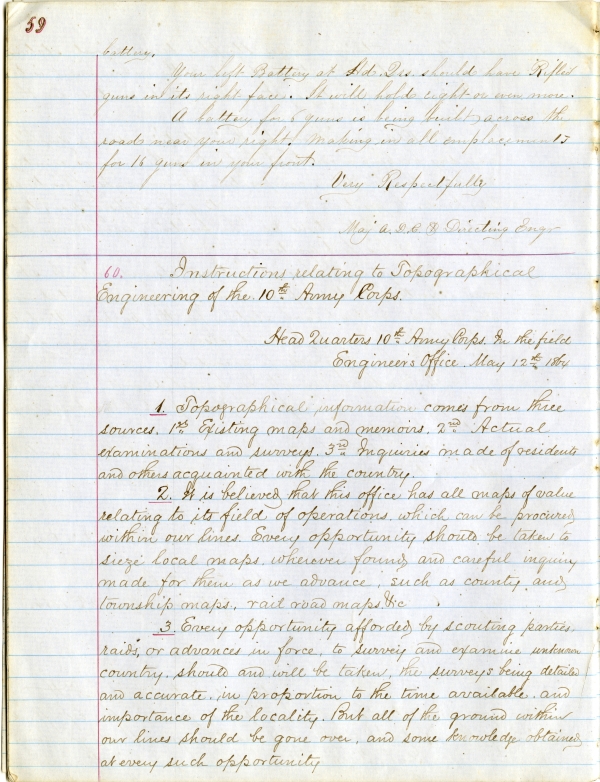 59
battery.
Your left Battery at Hd. Qrs. should have Rifled
guns in its right face. It will hold eight or even more.
A battery for 6 guns is being built across the
road near your right. Making in all emplacements
for 16 guns in your front.
Very Respectfully
Maj A.D.C. & Directing Engr
60. Instructions relating to Topographical
Engineering of the 10th Army Corps.
Head Quarters 10th Army Corps. In the field
Engineers Office. May 12th 1864
1. Topographical information comes from three
sources. 1st Existing maps and memoirs. 2nd Actual
examinations and surveys. 3rd Inquiries made of residents
and others acquainted with the country.
2. It is believed that this office has all maps of value
relating to its field of operations. which can be procured
within our lines. Every opportunity should be taken to
sieze local maps. wherever found and careful inquiry
made for them as we advance, such as county and
township maps. rail road maps. &c
3. Every opportunity afforded by scouting parties
raids, or advances in force, to survey and examine unknown
country. should and will be taken, the surveys being detailed
and accurate, in proportion to the time available. and
importance of the locality. But all of the ground within
our lines should be gone over, and some knowledge obtained
at every such opportunity